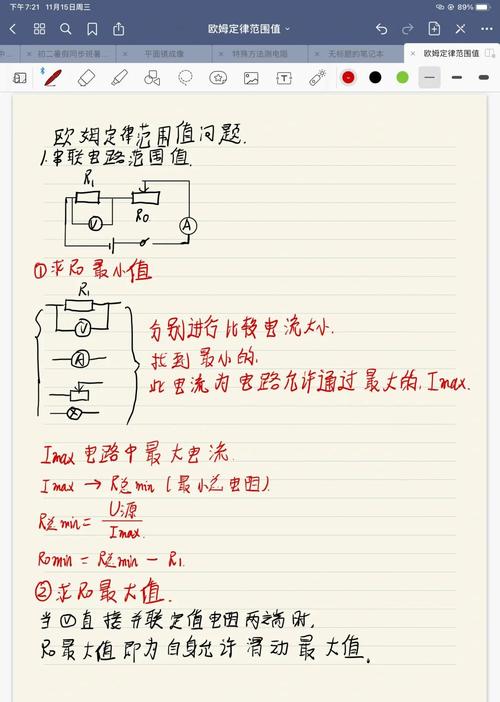 下午7:21 11月15日周三
89%
欧姆定律范围值
初二暑假同步班暑...
平面镜成像
特殊方法测电阻
无标题的笔记本
欧姆定律范围值
欧姆定律范围值问题.
1.串联电路范围值.
R₁
R₀
V
A
①求R₀最小值
R₁
V
A
分别进行比较电流大小.
找到最小的.
此电流为电路允许通过最大的, Imax.
Imax 电路中最大电流.
Imax → R总min (最小总电阻).
R总min = U源/Imax.
R₀min = R总min - R₁.
②求R₀最大值.
当Ⓥ直接并联定值电阻两端时,
R₀最大值即为自身允许滑动最大值.